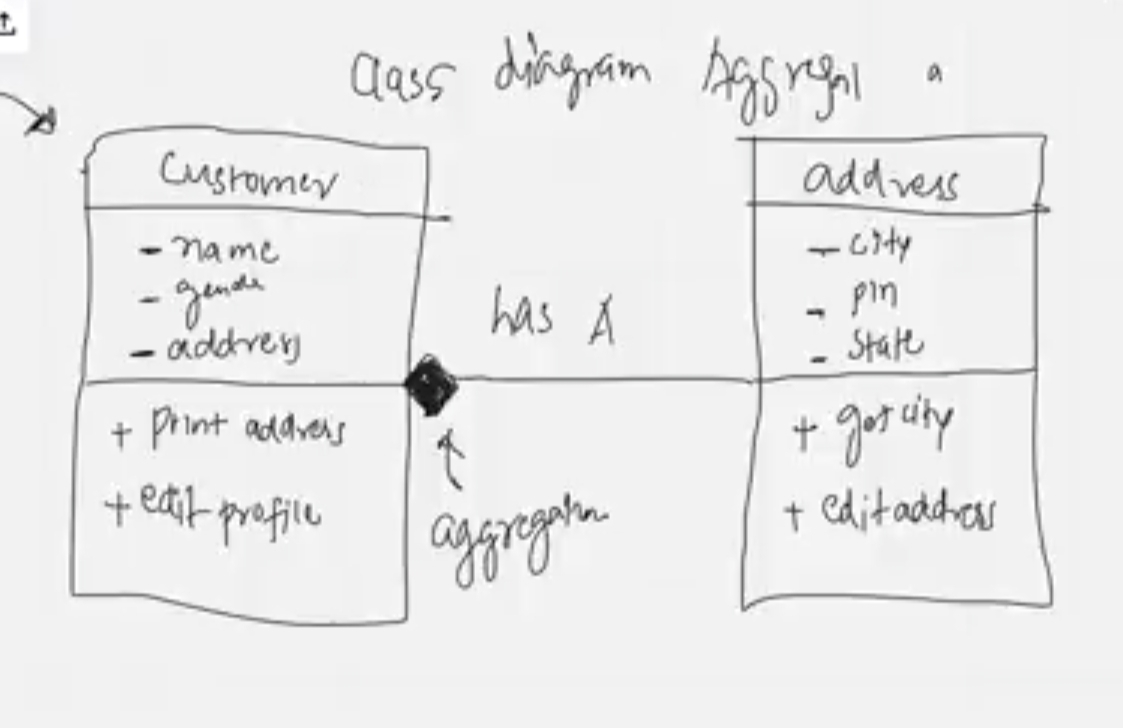 Class diagram Aggregal a
Customer
- name
- gende
- address
+ print address
+ edit profile
has A
aggregation
address
- city
- pin
- state
+ get city
+ edit address